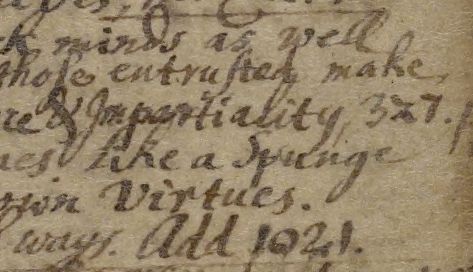 minds as well
those entrusted make
& Impartiality, 327.
like a Spunge
Virtues.
ways. Add 1021.